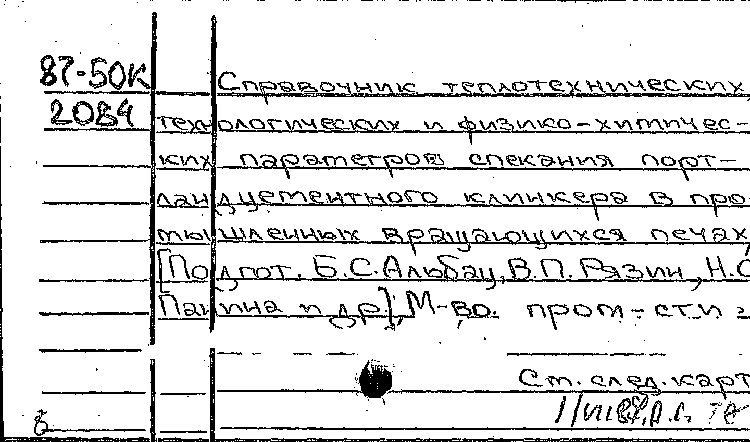 87-50К Справочник теплотехнических,
2084 технологических и физико-химичес-
ких параметров спекания порт-
ландцементного клинкера в про-
мышленных вращающихся печах
[Подгот. Б.С. Альбац, В.П. Рязин, Н.С
Панина и др]; М-во. пром-сти
См. след. карт